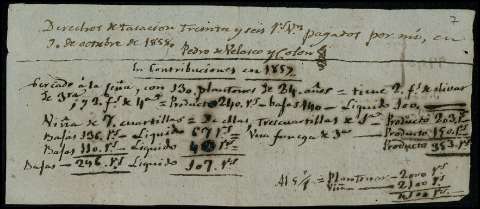 7
Derechos de tasacion treinta y seis r.s v.n pagados por mi, en
30. de octubre de 1858. Pedro de Velasco y Colon
En Contribuciones en 1857
Cercado a la Ceña, con 130. plantones de 24. años = tiene 2. f.s de olivar
de 3.ra, y 2. f.s de 4.a = Producto 240. r.s - bajas 140 - Liquido 100.
Viña de 7. cuartillas = De ellas tres cuartillas de 1.a - Producto 203. r.s
Bajas 136. r.s - Liquido 67 r.s = Una fanega de 3.a - Producto 150. r.s
Bajas 110. r.s - Liquido 40 r.s = Producto 353. r.s
Bajas - 246. r.s Liquido 107. r.s
Al 5 % = Plantones - 2000 r.s
Viña - 2100 r.s
4100 r.s